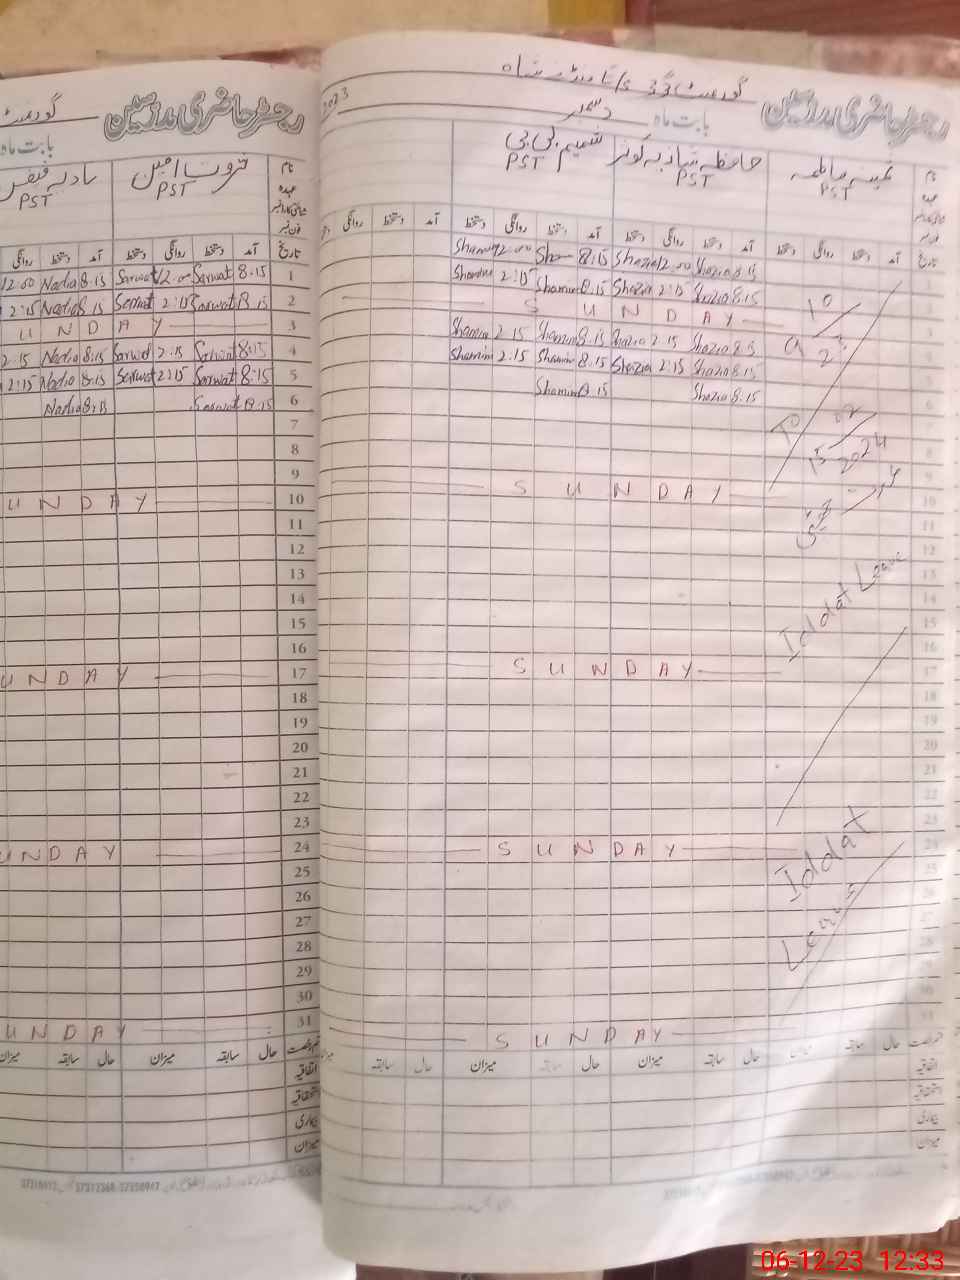 رجسٹر حاضری ملازمین
گورنمنٹ
بابت ماہ
نام
عہدہ
ثروت امین
PST
نادیہ فیض
PST
تاریخ
آمد دستخط روانگی دستخط آمد دستخط روانگی
1 8:15 Sarwat 12:00 Sarwat 8:15 Nadia 12:00
2 8:15 Sarwat 2:15 Sarwat 8:15 Nadia 2:15
3 U N D A Y
4 8:15 Sarwat 2:15 Sarwat 8:15 Nadia 2:15
5 8:15 Sarwat 2:15 Sarwat 8:15 Nadia 2:15
6 8:15 Sarwat 8:15 Nadia
7
8
9
10 U N D A Y
11
12
13
14
15
16
17 U N D A Y
18
19
20
21
22
23
24 U N D A Y
25
26
27
28
29
30
31 U N D A Y
حال سابقہ میزان حال سابقہ میزان
اتفاقیہ
استحقاقیہ
بیماری
میزان
رجسٹر حاضری ملازمین
گورنمنٹ
بابت ماہ دسمبر 2023
نام
عہدہ
PST
حافظہ شازیہ کوثر
PST
شمیم بی بی
PST
تاریخ
آمد دستخط روانگی دستخط آمد دستخط روانگی دستخط آمد دستخط روانگی دستخط آمد دستخط
8:15 Shazia 12:00 Shazia 8:15 Sham 12:00 Shamim
8:15 Shazia 2:15 Shazia 8:15 Shamim 2:15 Shamim
S U N D A Y
8:15 Shazia 2:15 Shazia 8:15 Shamim 2:15 Shamim
8:15 Shazia 2:15 Shazia 8:15 Shamim 2:15 Shamim
8:15 Shazia 8:15 Shamim
To
2024
S U N D A Y
Iddat Leave
S U N D A Y
S U N D A Y
Iddat
Leave
S U N D A Y
حال سابقہ میزان حال سابقہ میزان حال سابقہ میزان حال سابقہ
اتفاقیہ
استحقاقیہ
بیماری
میزان
06-12-23 12:33